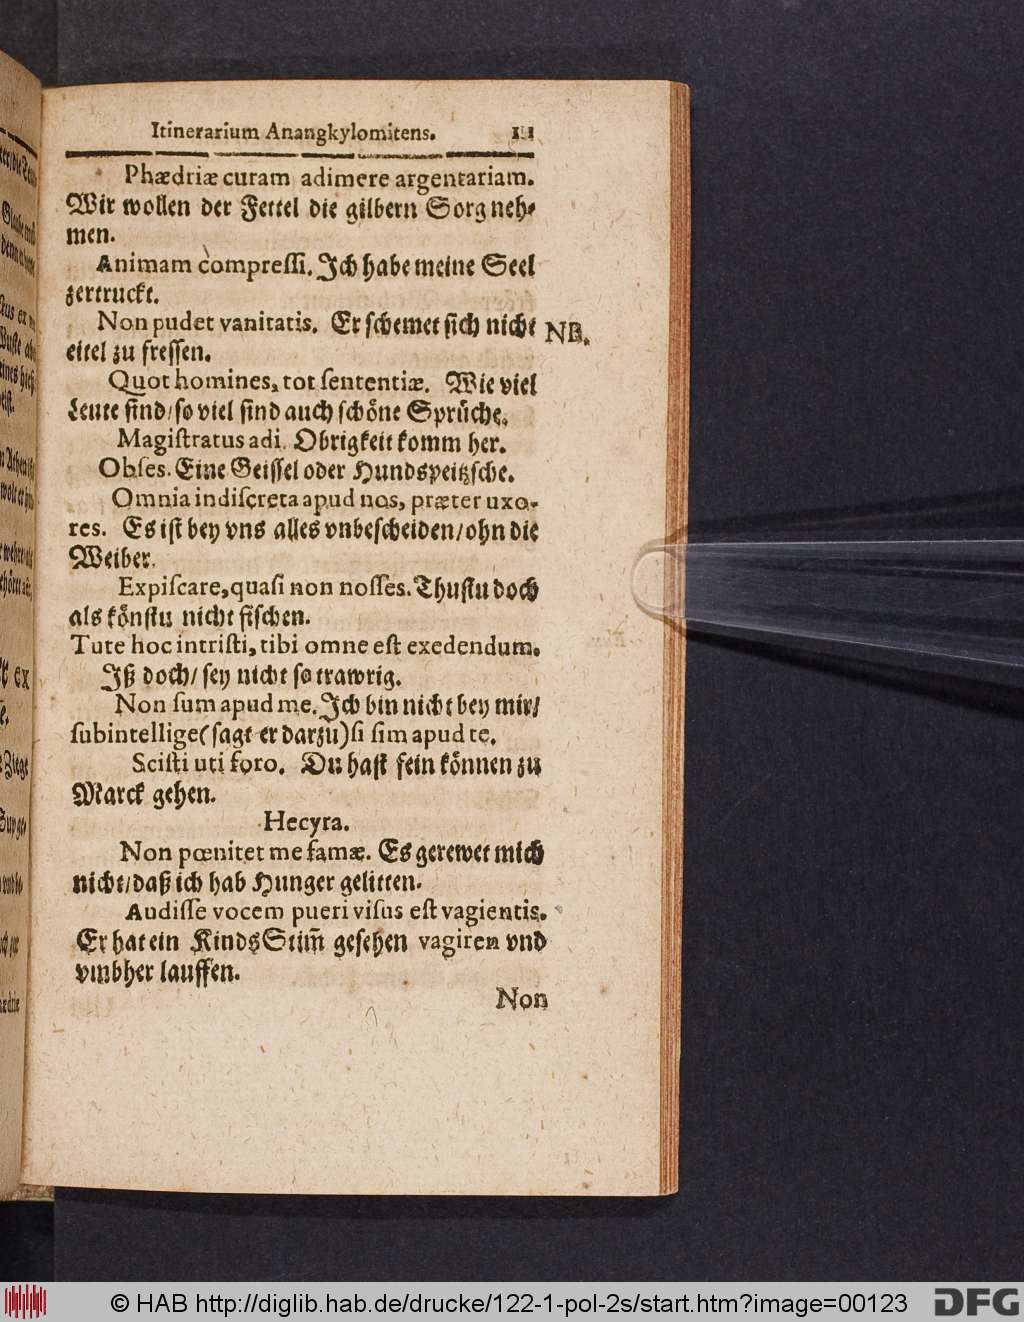 Itinerarium Anangkylomitens. 111
Phædriæ curam adimere argentariam.
Wir wollen der Fettel die gilbern Sorg neh-
men.
Animam compreſſi. Ich habe meine Seel
zertruckt.
Non pudet vanitatis. Er ſchemet ſich nicht NB.
eitel zu freſſen.
Quot homines, tot ſententiæ. Wie viel
Leute ſind/ ſo viel ſind auch ſchöne Sprüche.
Magiſtratus adi. Obrigkeit komm her.
Obſes. Eine Geiſſel oder Hundspeitzſche.
Omnia indiſcreta apud nos, præter uxo-
res. Es iſt bey vns alles vnbeſcheiden/ ohn die
Weiber.
Expiſcare, quaſi non noſſes. Thuſtu doch
als könſtu nicht fiſchen.
Tute hoc intriſti, tibi omne eſt exedendum.
Iß doch/ ſey nicht ſo trawrig.
Non ſum apud me. Ich bin nicht bey mir/
ſubintellige (ſagt er darzu) ſi ſim apud te.
Sciſti uti foro. Du haſt fein können zu
Marck gehen.
Hecyra.
Non pœnitet me famæ. Es gerewet mich
nicht/ daß ich hab Hunger gelitten.
Audiſſe vocem pueri viſus eſt vagientis.
Er hat ein Kinds Stim̃ geſehen vagiren vnd
vmbher lauffen.
Non
© HAB http://diglib.hab.de/drucke/122-1-pol-2s/start.htm?image=00123
DFG